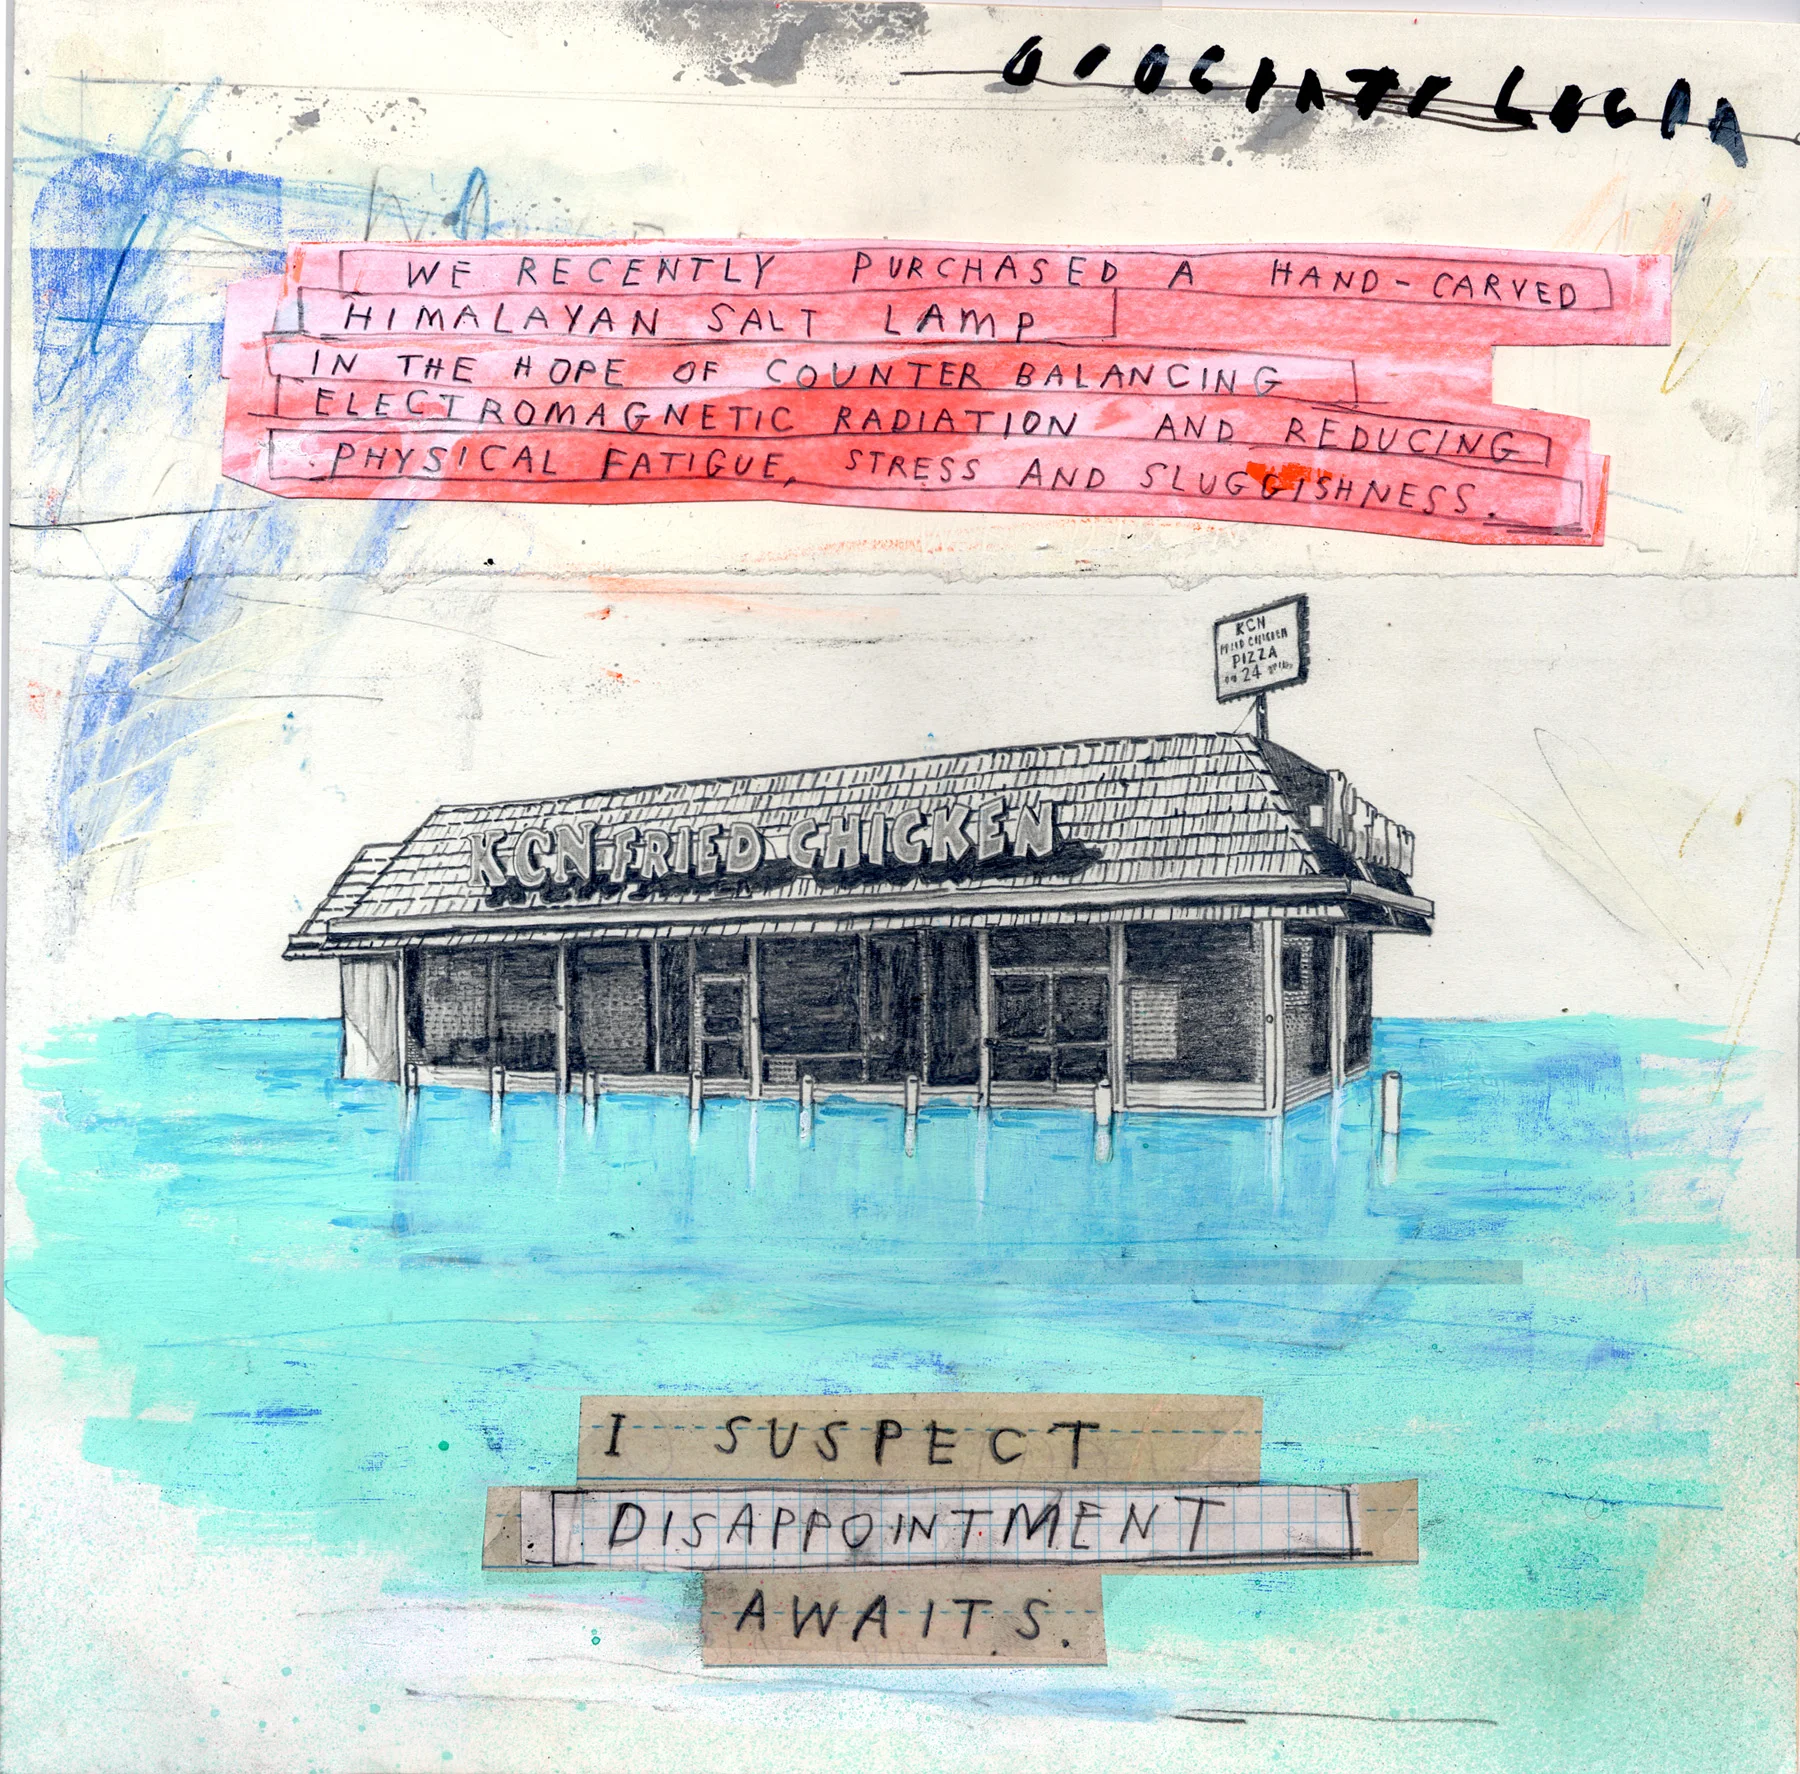 WE RECENTLY PURCHASED A HAND-CARVED
HIMALAYAN SALT LAMP
IN THE HOPE OF COUNTER BALANCING
ELECTROMAGNETIC RADIATION AND REDUCING
PHYSICAL FATIGUE, STRESS AND SLUGGISHNESS.
KCN
CHICKEN
PIZZA
24
KCN FRIED CHICKEN
I SUSPECT
DISAPPOINTMENT
AWAITS.